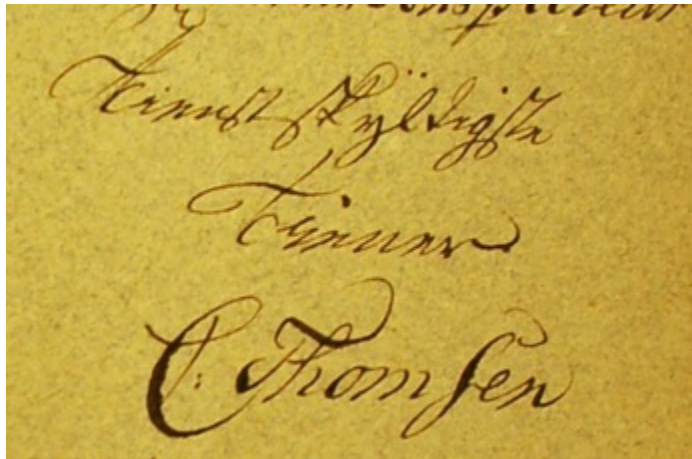 Tienstskÿldigste
Tiener
C. Thomsen